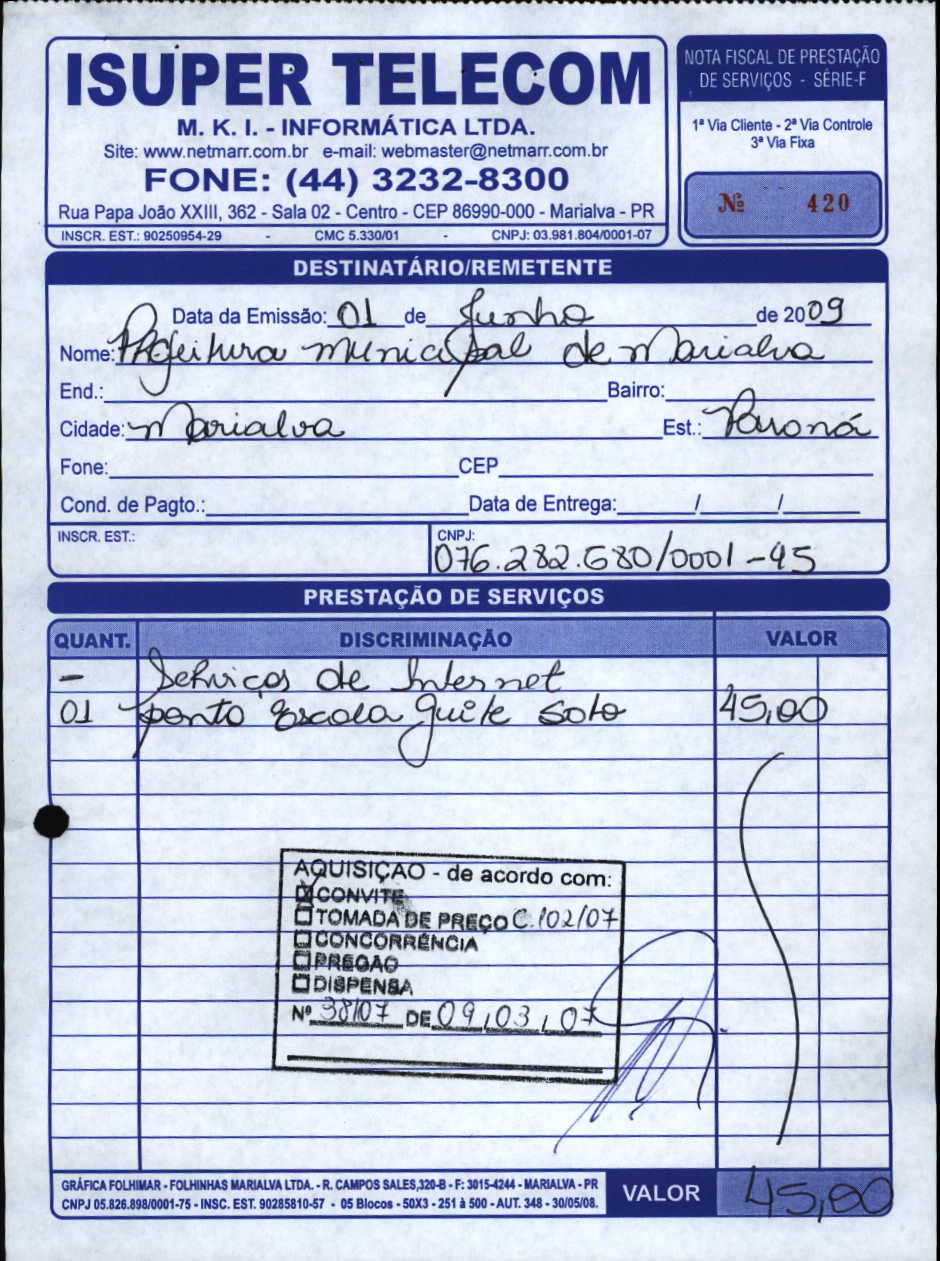 ISUPER TELECOM
M. K. I. - INFORMÁTICA LTDA.
Site: www.netmarr.com.br e-mail: webmaster@netmarr.com.br
FONE: (44) 3232-8300
Rua Papa João XXIII, 362 - Sala 02 - Centro - CEP 86990-000 - Marialva - PR
INSCR. EST.: 90250954-29 - CMC 5.330/01 - CNPJ: 03.981.804/0001-07
NOTA FISCAL DE PRESTAÇÃO
DE SERVIÇOS - SÉRIE-F
1ª Via Cliente - 2ª Via Controle
3ª Via Fixa
Nº 420
DESTINATÁRIO/REMETENTE
Data da Emissão: 01 de Junho de 2009
Nome: Prefeitura municipal de Marialva
End.: Bairro:
Cidade: Marialva Est.: Paraná
Fone: CEP
Cond. de Pagto.: Data de Entrega: / /
INSCR. EST.: CNPJ:
076.282.680/0001-45
PRESTAÇÃO DE SERVIÇOS
QUANT. DISCRIMINAÇÃO VALOR
- Serviços de Internet
01 ponto Escola 45,00
AQUISIÇAO - de acordo com:
CONVITE
TOMADA DE PREÇO C.102/07
CONCORRÊNCIA
PREGAO
DISPENSA
Nº 38/07 DE 09,03,07
GRÁFICA FOLHIMAR - FOLHINHAS MARIALVA LTDA. - R. CAMPOS SALES,320-B - F: 3015-4244 - MARIALVA - PR
CNPJ 05.826.898/0001-75 - INSC. EST. 90285810-57 - 05 Blocos - 50X3 - 251 à 500 - AUT. 348 - 30/05/08.
VALOR 45,00